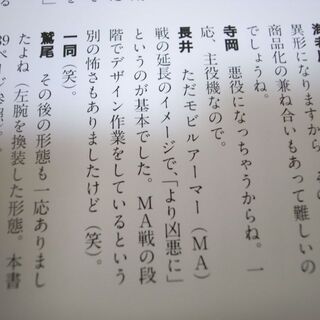 海老川
異形になりますから、その
商品化の兼ね合いもあって難しいの
でしょうね。
寺岡　悪役になっちゃうからね。一
応、主役機なので。
長井　ただモビルアーマー（ＭＡ）
戦の延長のイメージで、「より凶悪に」
というのが基本でした。ＭＡ戦の段
階でデザイン作業をしているという
別の怖さもありましたけど（笑）。
一同（笑）。
鷲尾　その後の形態も一応ありまし
たよね（左腕を換装した形態。本書